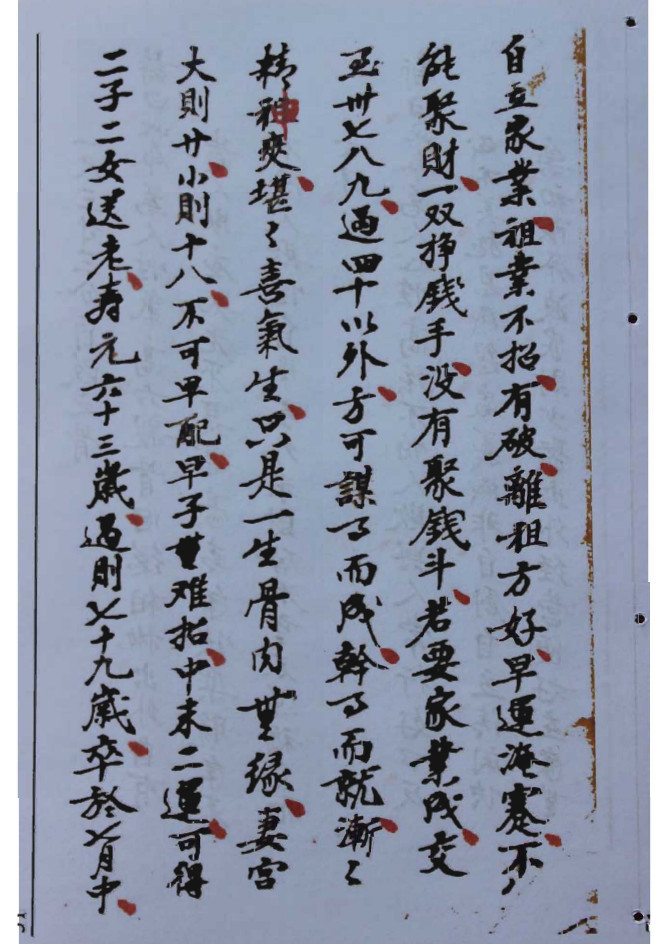 自立家業祖業不招有破離祖方好早運淹蹇不
能聚財一双掙錢手没有聚錢斗若要家業成交
至卅七八九過四十以外方可謀事而成幹事而就漸〻
精神爽堪〻喜氣生只是一生骨肉無緣妻宮
大則廿小則十八不可早配早子無难招中末二運可得
二子二女送老寿元六十三歲過則七十九歲卒於七月中